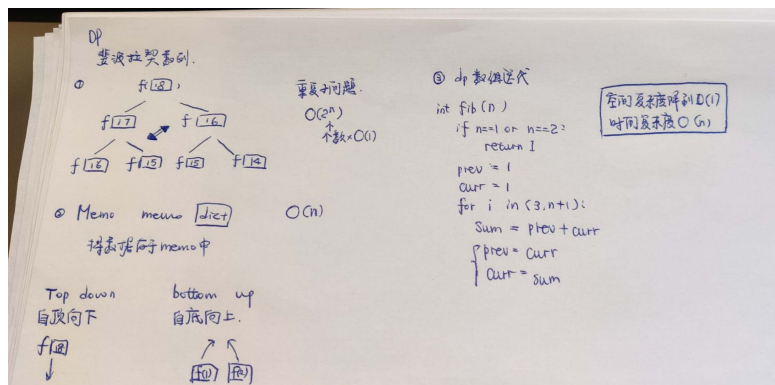 DP
斐波拉契数列.
① f(18)
f(17) f(16)
f(16) f(15) f(15) f(14)
重复子问题.
O(2ⁿ)
个数×O(1)
② Memo memo dict O(n)
将数据存于memo中
Top down
自顶向下
f(18)
bottom up
自底向上.
f(1) f(2)
③ dp 数组迭代
int fib(n)
if n==1 or n==2:
return 1
prev = 1
curr = 1
for i in (3,n+1):
Sum = prev + curr
prev = curr
curr = sum
空间复杂度降到O(1)
时间复杂度O(n)